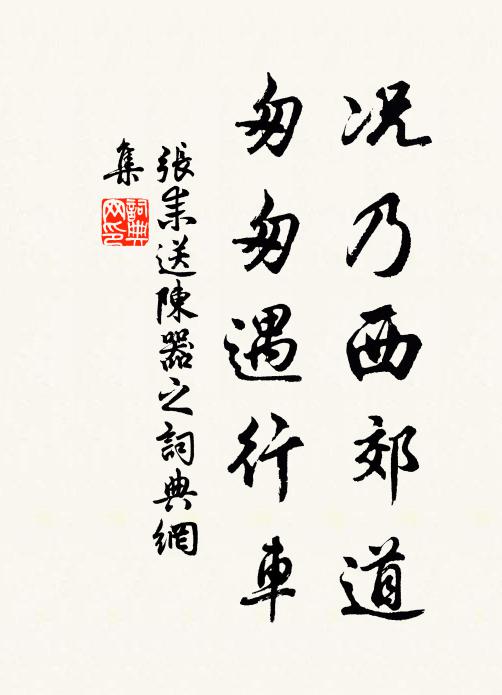 况乃西郊道
匆匆遇行車
張耒送陳器之詞典網
集
詞典
网印